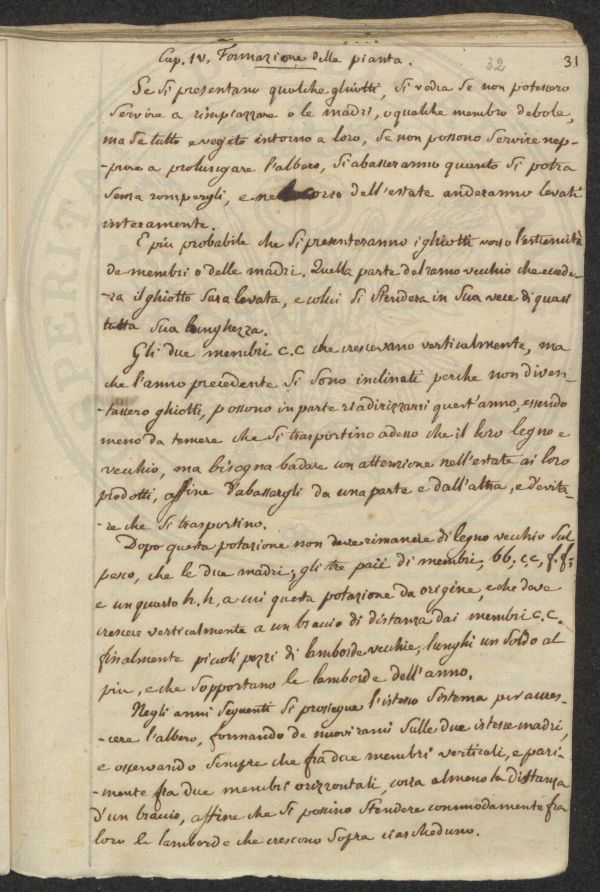 Cap. IV. Formazione della pianta. 32 31
Se si presentano qualche ghiotti, si vedra se non potessero
servire a rimpiazzare o le madri, o qualche membro debole,
ma se tutto e vegeto intorno a loro, se non possono servire nep-
-pure a prolungare l'albero, si abasseranno quanto si potra
senza rompergli, e nel corso dell'estate anderanno levati
interamente.
E piu probabile che si presenteranno i ghiotti verso l'estremità
de membri o delle madri. Quella parte del ramo vecchio che ecede-
-ra il ghiotto sara levata, e colui si stendera in sua vece di quasi
tutta sua lunghezza.
Gli due membri c.c che crescevano verticalmente, ma
che l'anno precedente si sono inclinati perche non diven-
-tassero ghiotti, possono in parte riadirizzarsi quest'anno, essendo
meno da temere che si trasportino adesso che il loro legno e
vecchio, ma bisogna badare con attenzione nell'estate ai loro
prodotti, affine d'abassargli da una parte e dall'altra, e d'evita-
-re che si trasportino.
Dopo questa potazione non deve rimanere di legno vecchio sul
pesco, che le due madri; gli tre paii di membri, bb, c.c, f.f;
e un quarto h, h, a cui questa potazione da origine, e che deve
crescere verticalmente a un braccio di distanza dai membri c.c.
finalmente piccoli pezzi di lamborde vecchie, lunghi un soldo al
piu, e che sopportano le lamborde dell'anno.
Negli anni seguenti si prossegue l'istesso sistema per acres-
-cere l'albero, formando de nuovi rami sulle due istesse madri,
e osservando sempre che fra due membri verticali, e pari-
-mente fra due membri orizzontali, corra almeno la distanza
d'un braccio, affine che si possino stendere commodamente fra
loro le lamborde che crescono sopra ciascheduno.